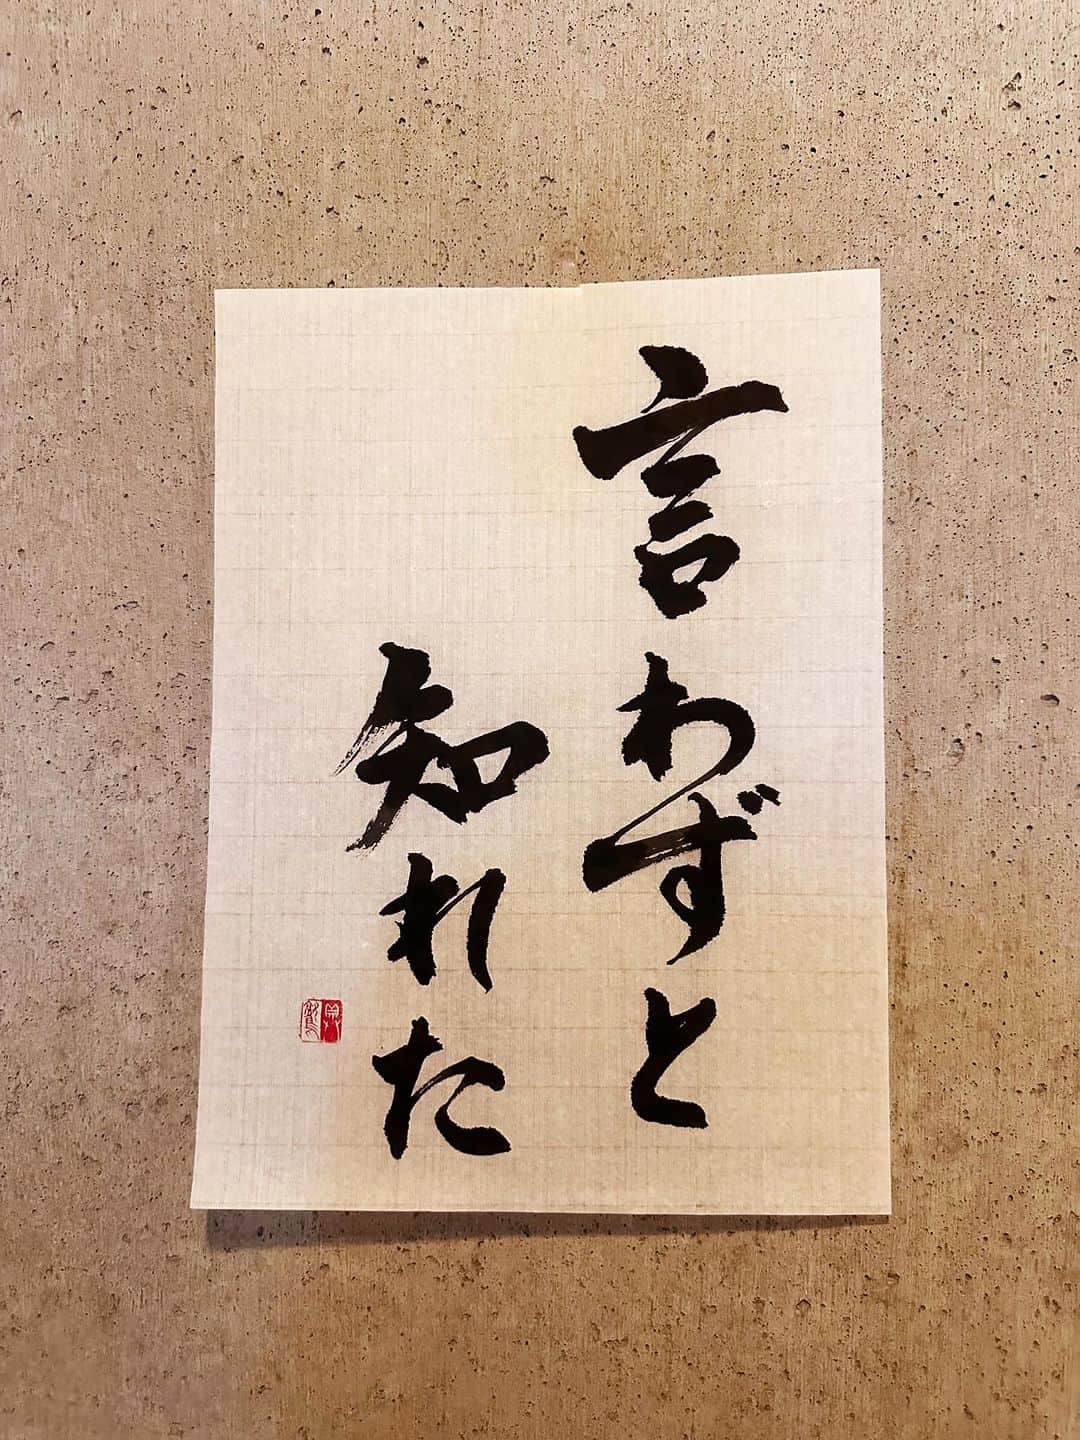 言わずと
知れた